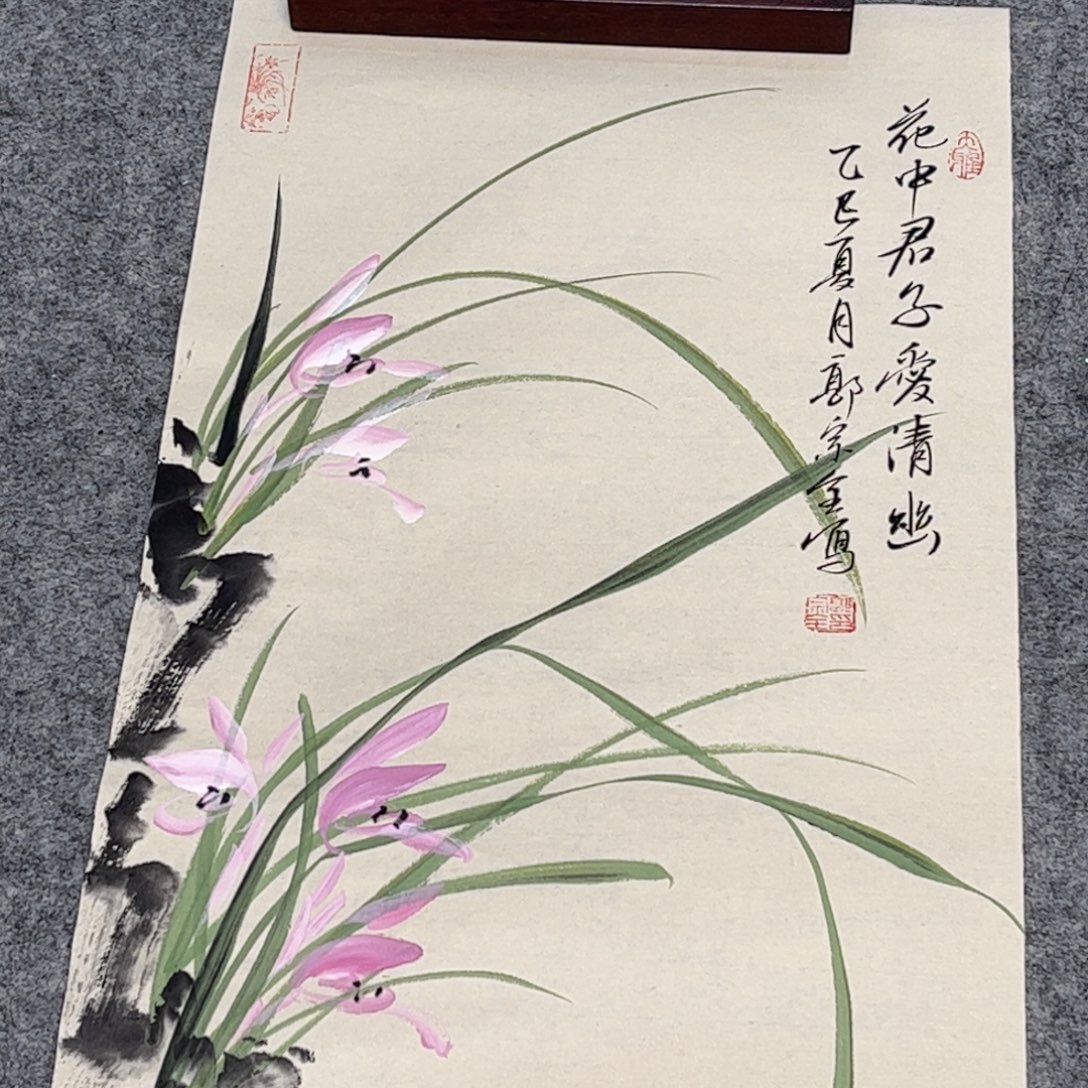 花中君子愛清幽
乙巳夏月郎宗全寫